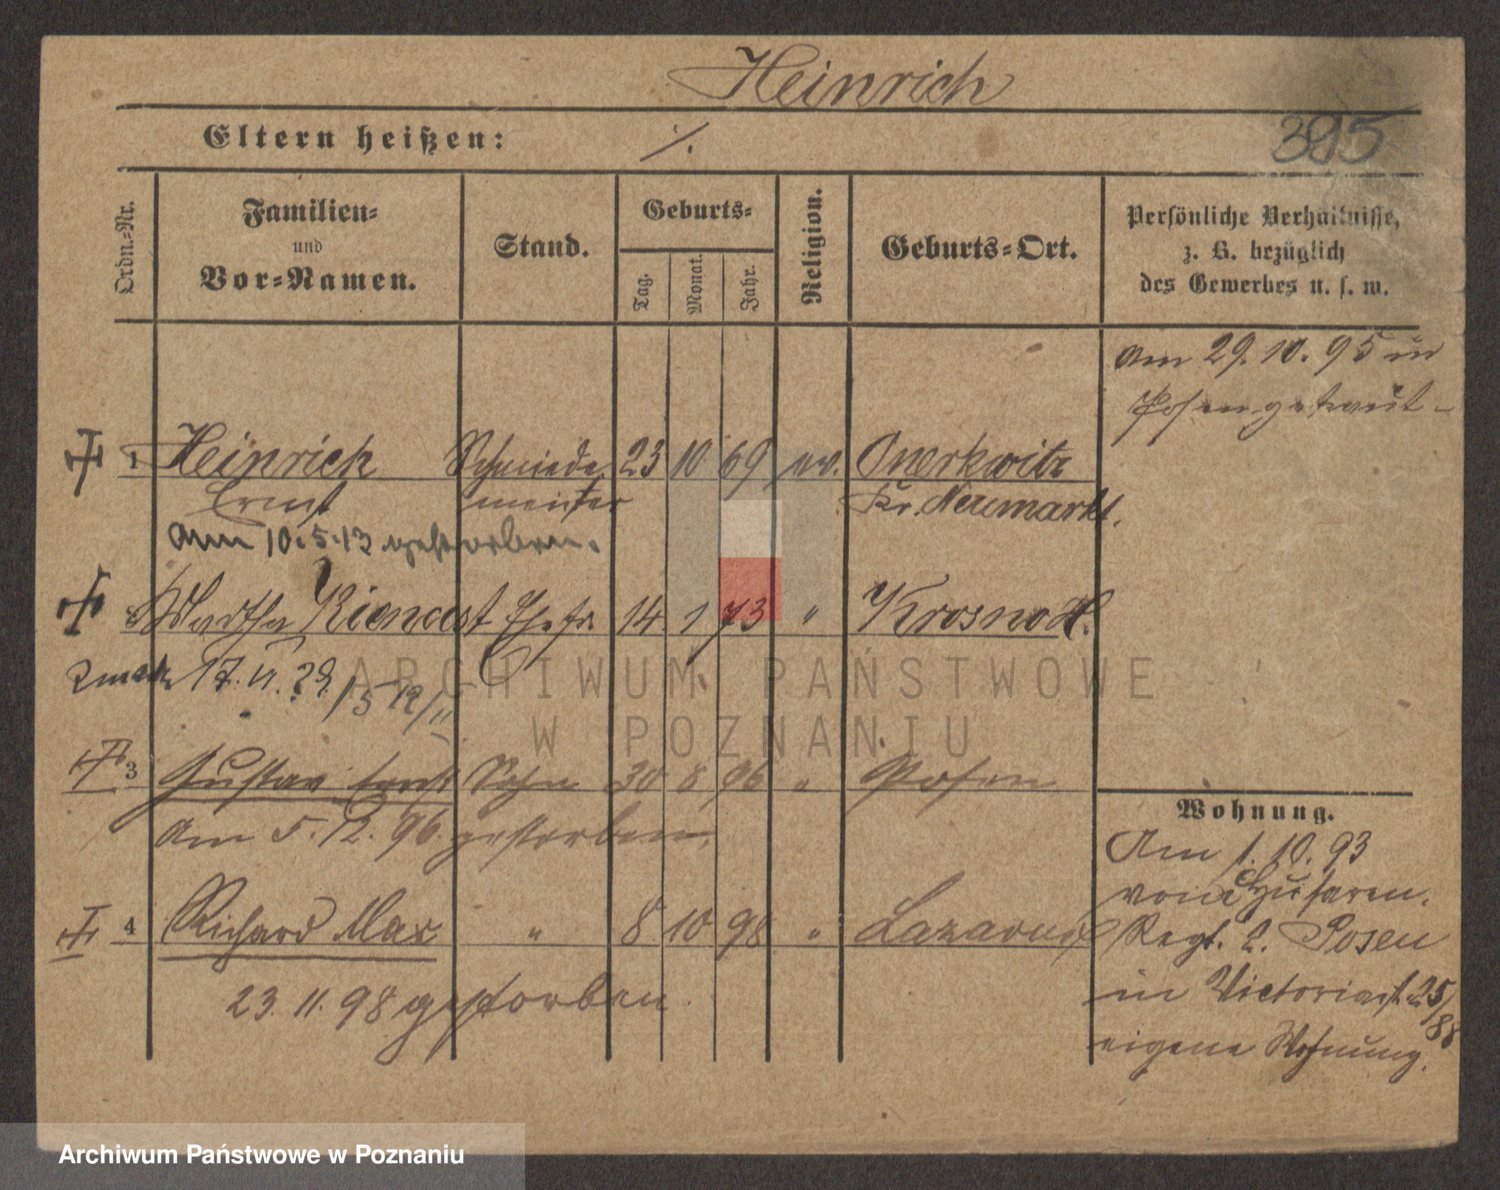 Heinrich
Eltern heißen: ./.
395
Ordn.-Nr.
Familien-
und
Vor-Namen.
Stand.
Geburts-
Tag.
Monat.
Jahr.
Religion.
Geburts-Ort.
Persönliche Verhältnisse,
z. B. bezüglich
des Gewerbes u. s. w.
Am 29.10.95 in
Posen getraut -
1 Heinrich Schmiede 23 10 69 ev. Onerkwitz
Ernst meister Kr. Neumarkt.
am 10.5.13 gestorben.
Martha Ehefr. 14 1 73 " Krosno H.
17.
ARCHIWUM PAŃSTWOWE
W POZNANIU
3 Gustav Ernst Sohn 30 8 96 " Posen
am 5.12.96. gestorben.
4 Richard Max " 8 10 98 " Lazarus
23.11.98 gestorben.
Wohnung.
Am 1.10.93
vom Husaren.
Regt. 2. Posen
in Victoriast. 25/
88
eigene Wohnung.
Archiwum Państwowe w Poznaniu